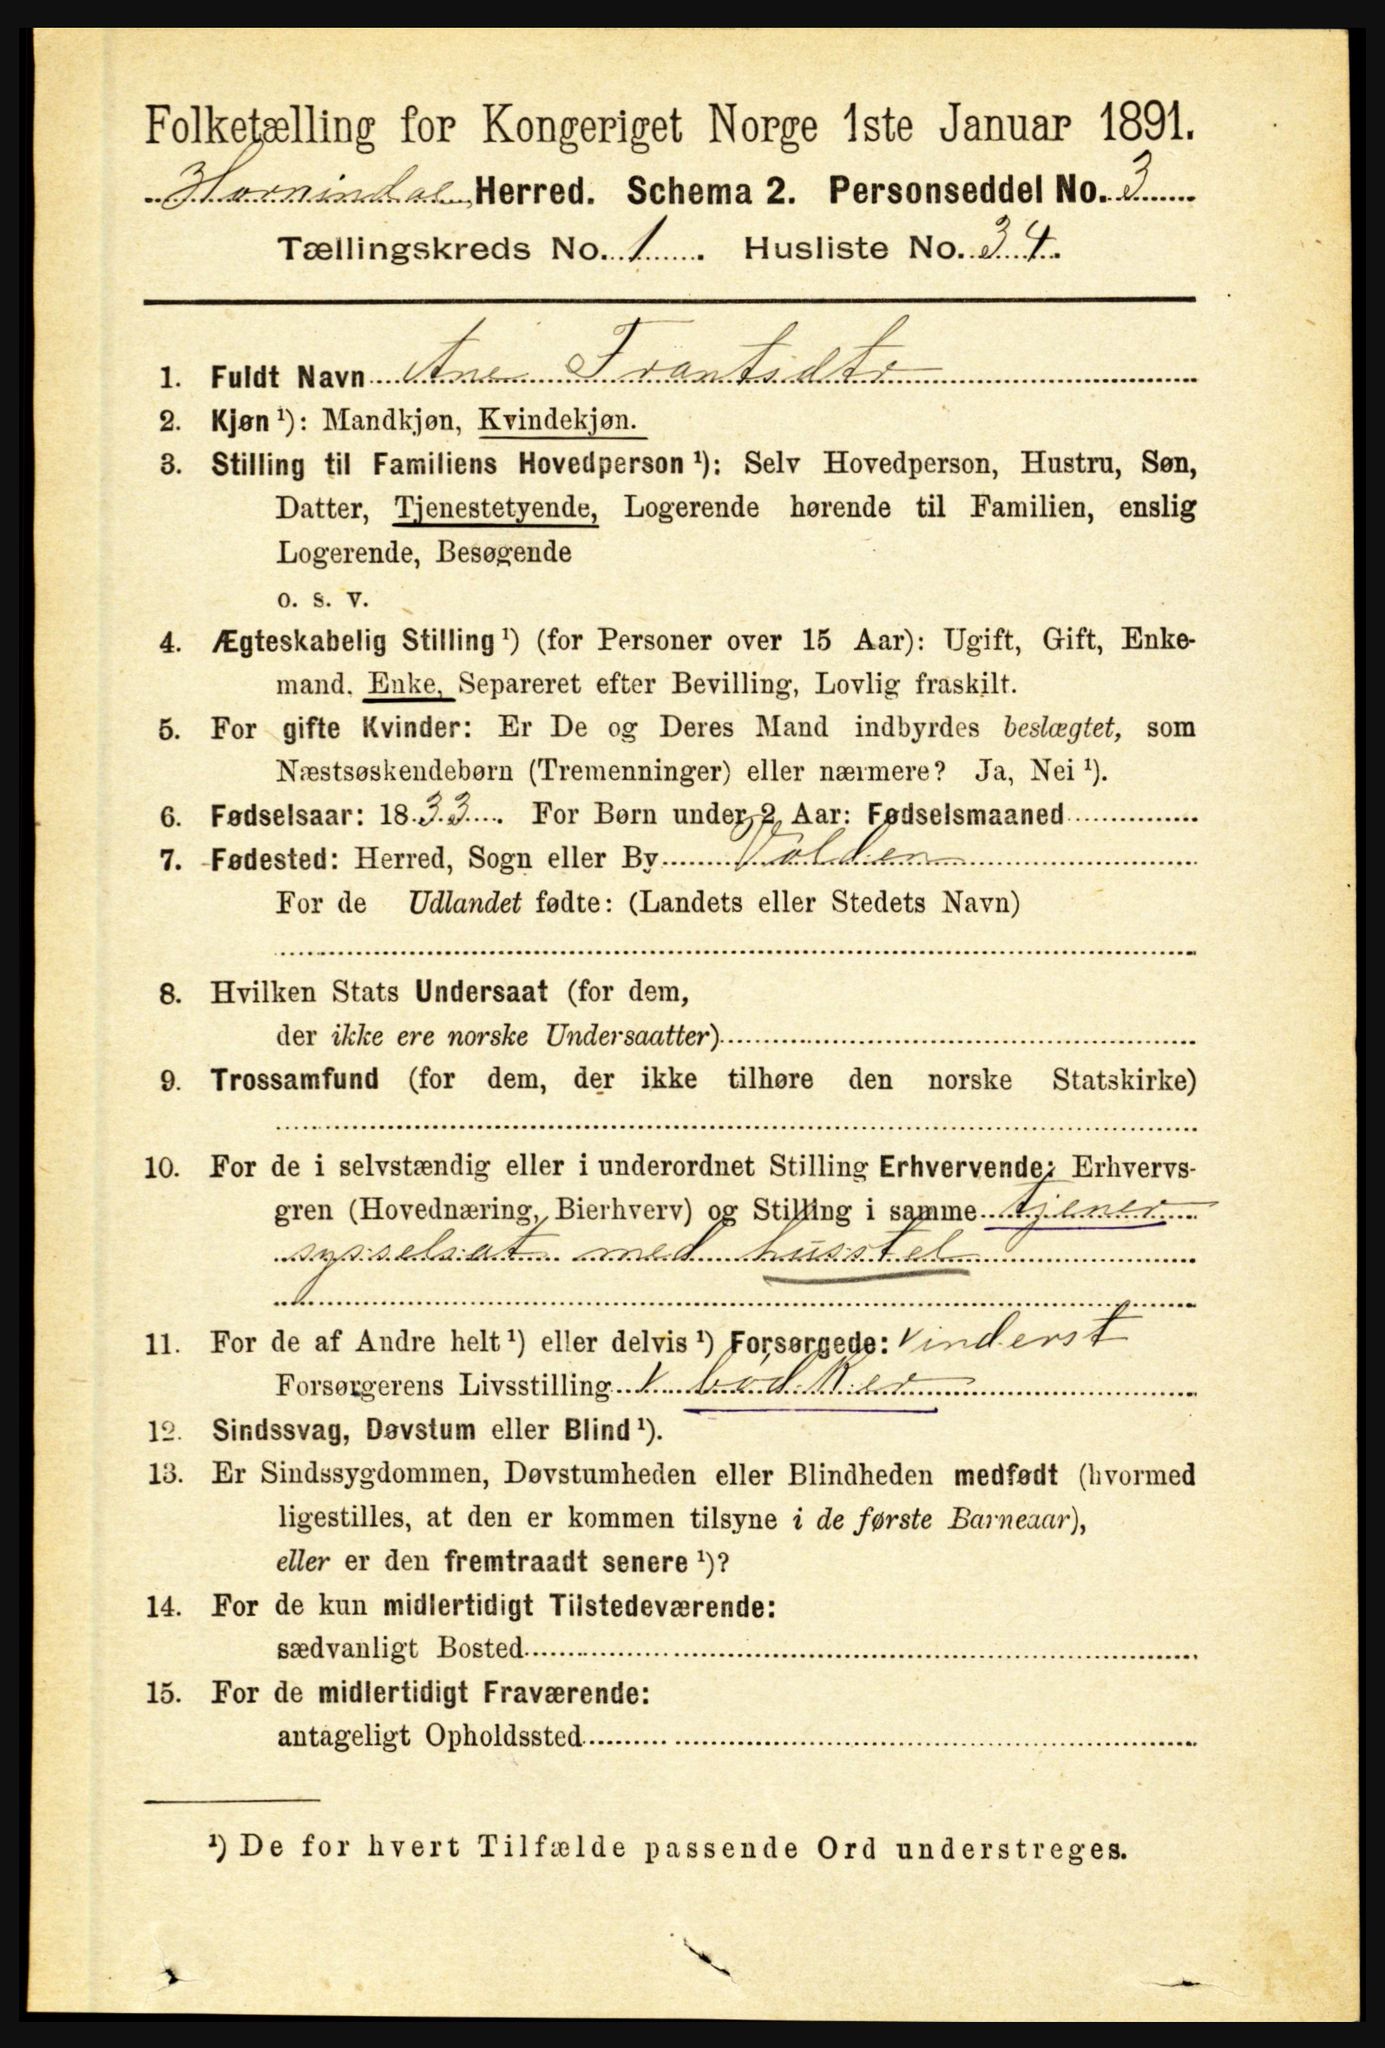 Folketælling for Kongeriget Norge 1ste Januar 1891.
Hornindal Herred. Schema 2. Personseddel No. 3
Tællingskreds No. 1 Husliste No. 34.
1. Fuldt Navn Ane Frantsdtr
2. Kjøn ¹): Mandkjøn, Kvindekjøn.
3. Stilling til Familiens Hovedperson ¹): Selv Hovedperson, Hustru, Søn,
Datter, Tjenestetyende, Logerende hørende til Familien, enslig
Logerende, Besøgende
o. s. v.
4. Ægteskabelig Stilling ¹) (for Personer over 15 Aar): Ugift, Gift, Enke-
mand, Enke, Separeret efter Bevilling, Lovlig fraskilt.
5. For gifte Kvinder: Er De og Deres Mand indbyrdes beslægtet, som
Næstsøskendebørn (Tremenninger) eller nærmere? Ja, Nei ¹).
6. Fødselsaar: 1833. For Børn under 2 Aar: Fødselsmaaned
7. Fødested: Herred, Sogn eller By Volden
For de Udlandet fødte: (Landets eller Stedets Navn)
8. Hvilken Stats Undersaat (for dem,
der ikke ere norske Undersaatter)
9. Trossamfund (for dem, der ikke tilhøre den norske Statskirke)
10. For de i selvstændig eller i underordnet Stilling Erhvervende: Erhvervs-
gren (Hovednæring, Bierhverv) og Stilling i samme tjener
sysselsat med husstel
11. For de af Andre helt ¹) eller delvis ¹) Forsørgede: vinderst
Forsørgerens Livsstilling v bødker
12. Sindssvag, Døvstum eller Blind ¹).
13. Er Sindssygdommen, Døvstumheden eller Blindheden medfødt (hvormed
ligestilles, at den er kommen tilsyne i de første Barneaar),
eller er den fremtraadt senere ¹)?
14. For de kun midlertidigt Tilstedeværende:
sædvanligt Bosted
15. For de midlertidigt Fraværende:
antageligt Opholdssted
¹) De for hvert Tilfælde passende Ord understreges.